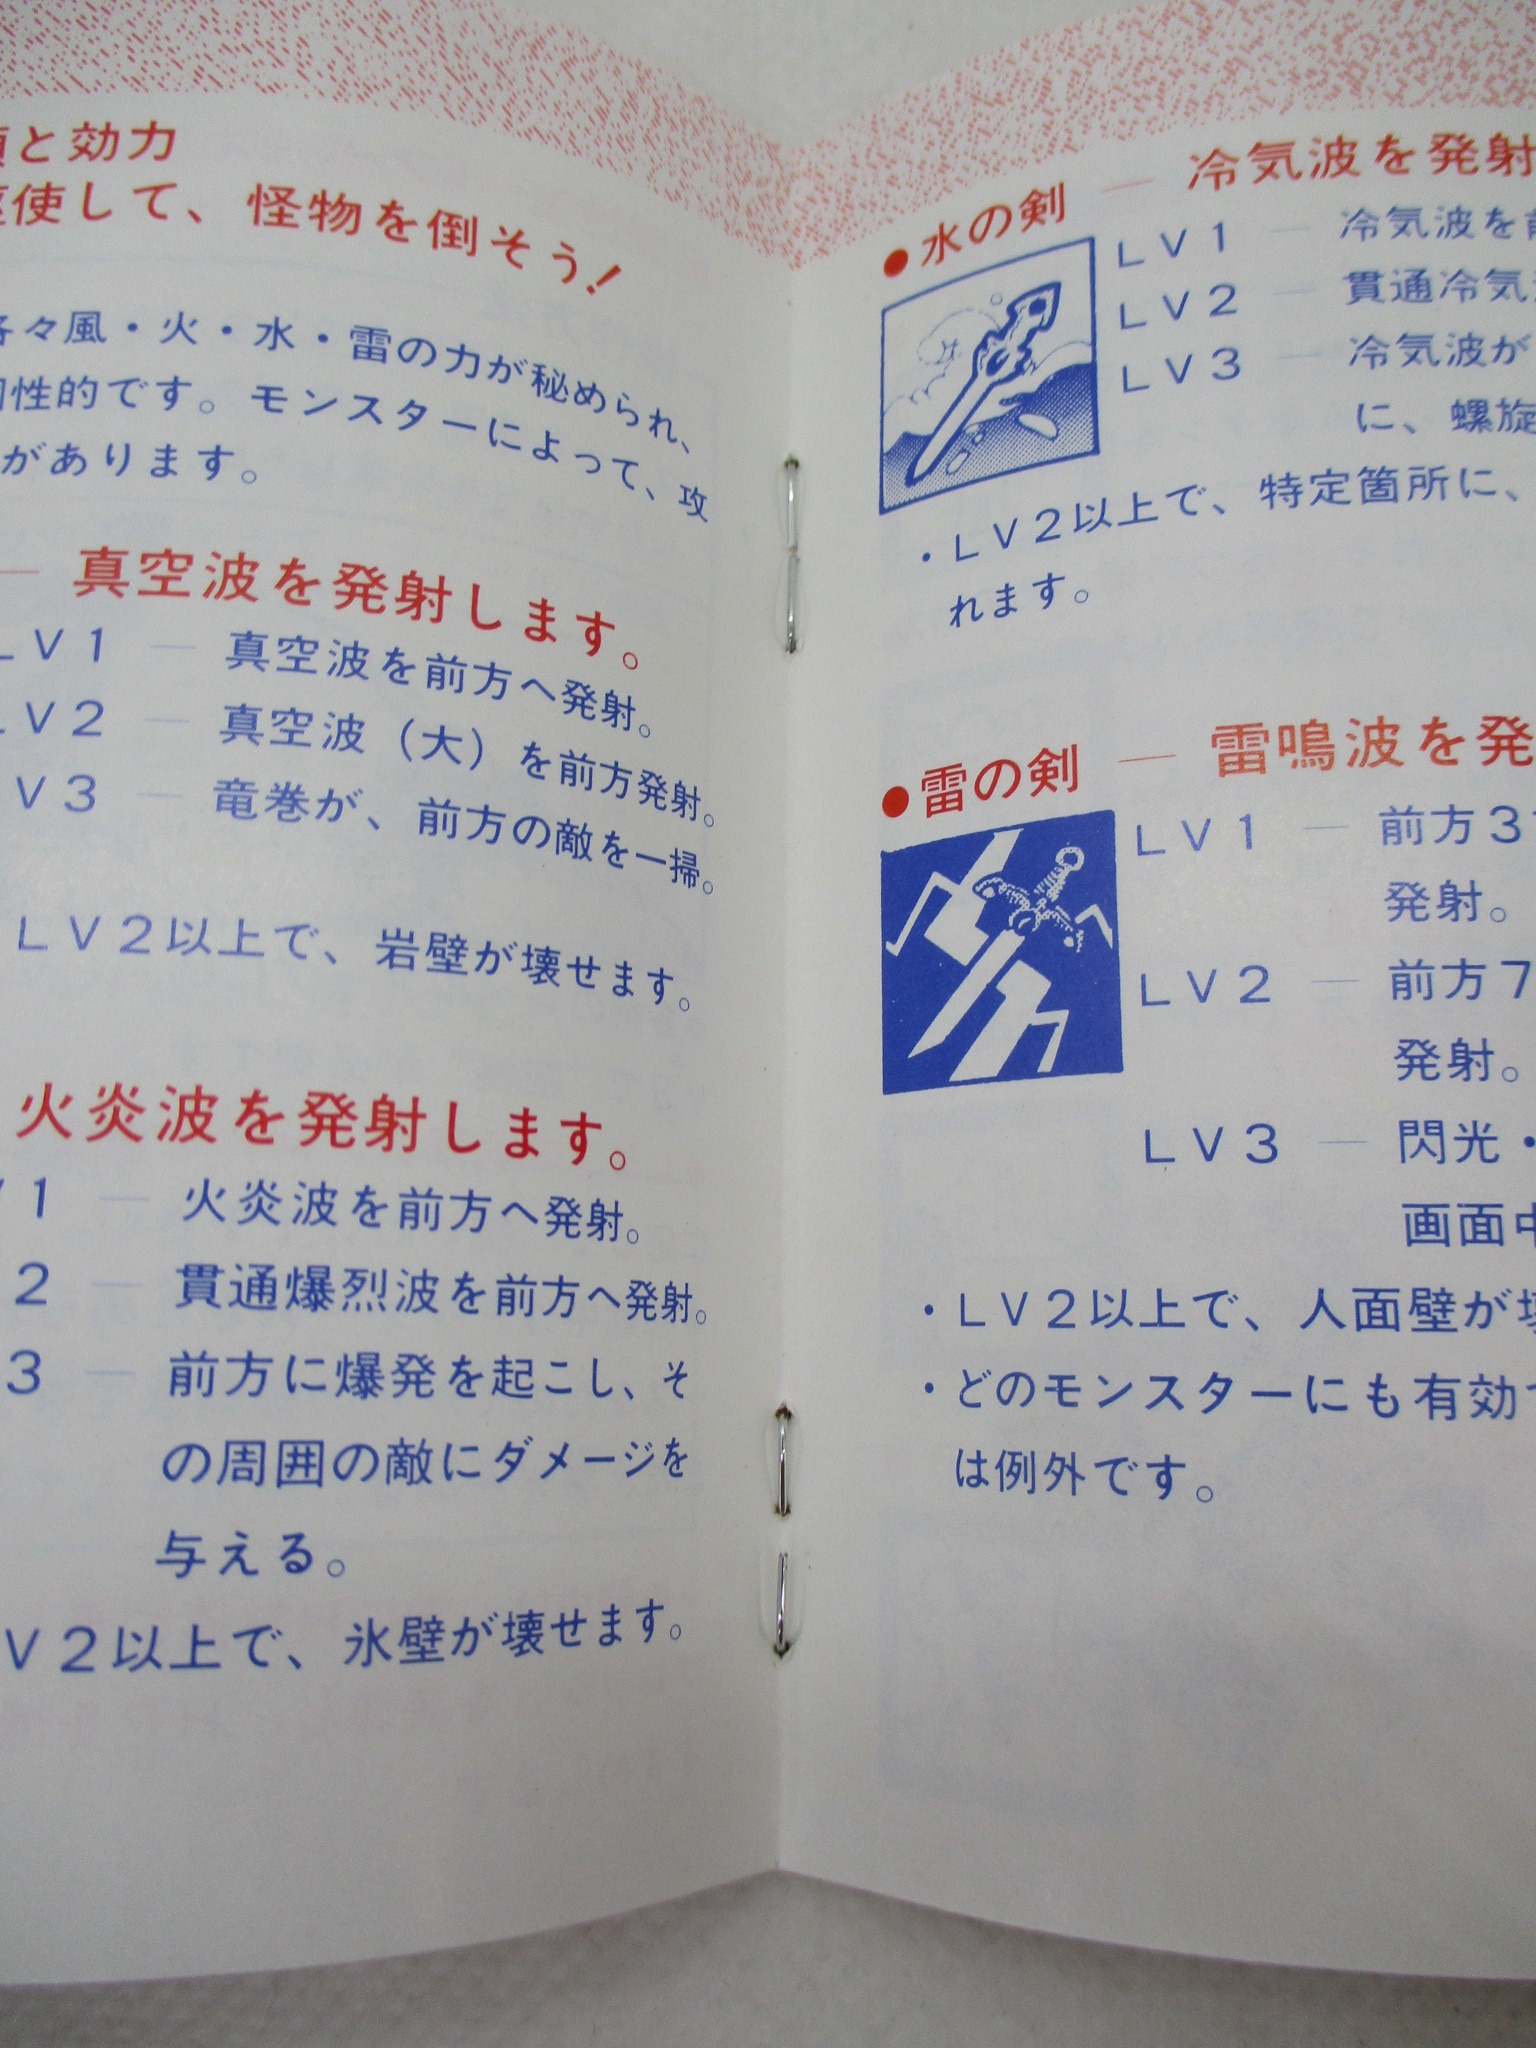 と効力
使して、怪物を倒そう！
各々風・火・水・雷の力が秘められ、
性的です。モンスターによって、攻
があります。
— 真空波を発射します。
LV1 — 真空波を前方へ発射。
LV2 — 真空波（大）を前方発射。
V3 — 竜巻が、前方の敵を一掃。
LV2以上で、岩壁が壊せます。
火炎波を発射します。
V1 — 火炎波を前方へ発射。
2 — 貫通爆烈波を前方へ発射。
3 — 前方に爆発を起こし、そ
の周囲の敵にダメージを
与える。
V2以上で、氷壁が壊せます。
●水の剣 — 冷気波を発射
LV1 — 冷気波を前
LV2 — 貫通冷気
LV3 — 冷気波が
に、螺旋
・LV2以上で、特定箇所に、
れます。
●雷の剣 — 雷鳴波を発
LV1 — 前方3
発射。
LV2 — 前方7
発射。
LV3 — 閃光・
画面中
・LV2以上で、人面壁が壊
・どのモンスターにも有効
は例外です。